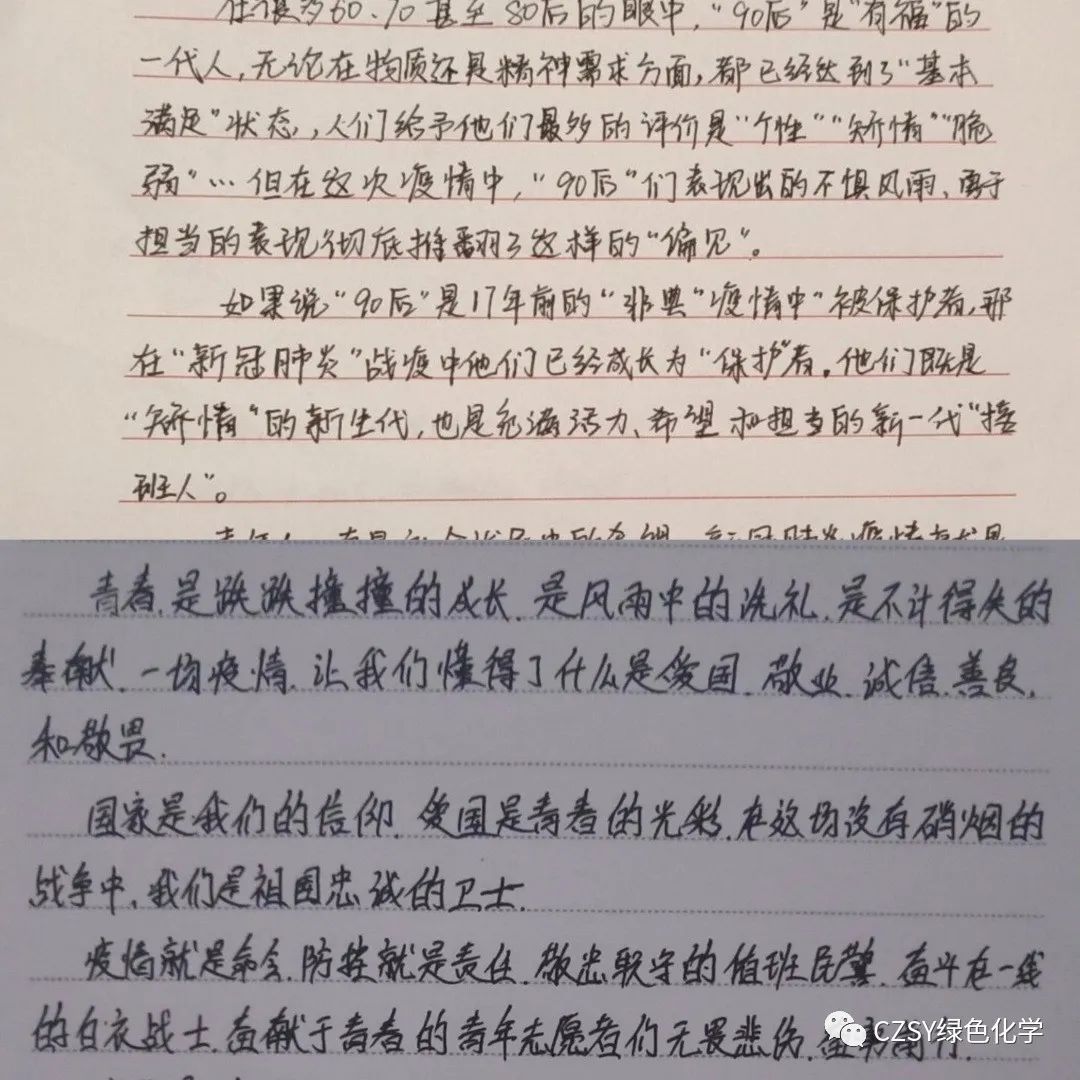 在很多60、70甚至80后的眼中，“90后”是“有福”的
一代人，无论在物质还是精神需求方面，都已经达到了“基本
满足”状态，人们给予他们最多的评价是“个性”“矫情”“脆
弱”…但在这次疫情中，“90后”们表现出的不惧风雨、勇于
担当的表现彻底推翻了这样的“偏见”。
如果说“90后”是17年前的“非典”疫情中“被保护者，那
在“新冠肺炎”战疫中他们已经成长为“保护”者。他们既是
“矫情”的新生代，也是充满活力、希望和担当的新一代“接
班人”。
青春，是跌跌撞撞的成长，是风雨中的洗礼，是不计得失的
奉献，一场疫情，让我们懂得了什么是爱国，敬业，诚信，善良，
和敬畏.
国家是我们的信仰，爱国是青春的光彩，在这场没有硝烟的
战争中，我们是祖国忠诚的卫士.
疫情就是命令，防控就是责任，敬忠职守的值班民警，奋斗在一线
的白衣战士，奋献于青春的青年志愿者们无畏悲伤，
CZSY绿色化学